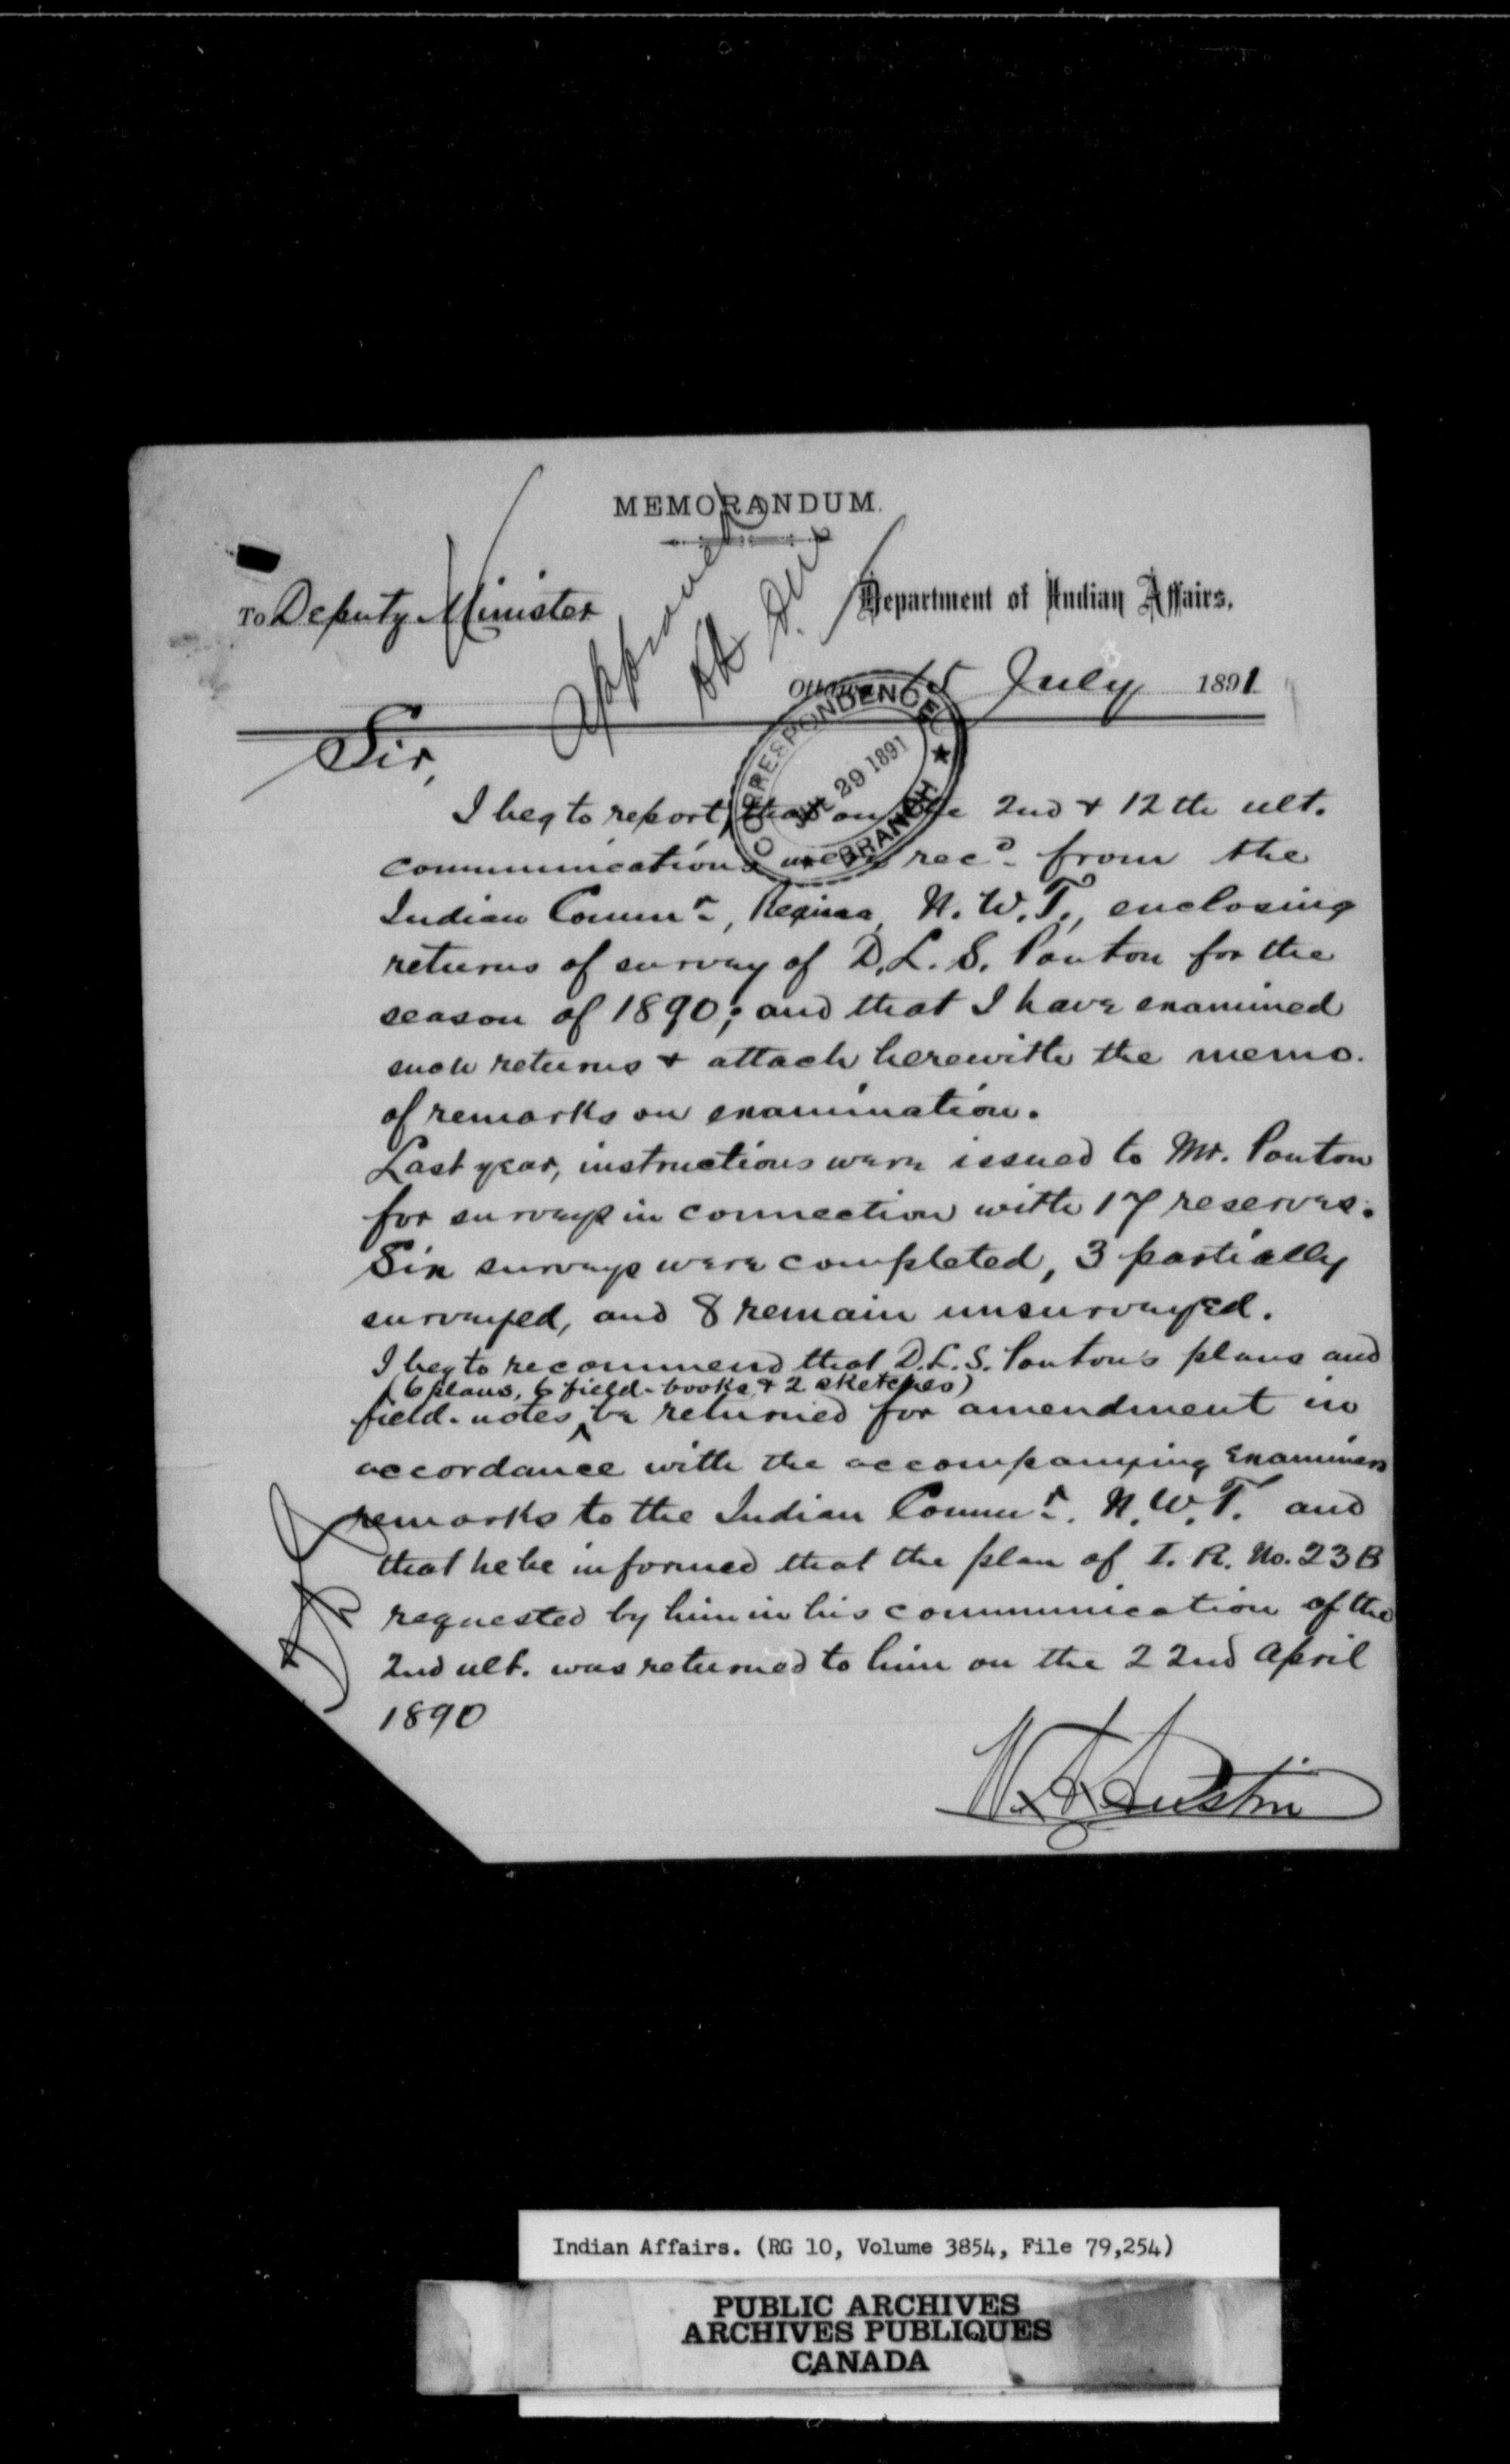 MEMORANDUM.
To Deputy Minister
Approved
Department of Indian Affairs,
Ottawa 15 July 1891
CORRESPONDENCE
JUL 29 1891
BRANCH
Sir,
I beg to report, that on the 2nd & 12th ult.
communications were recd. from the
Indian Commr., Regina, N.W.T., enclosing
returns of survey of D.L.S. Ponton for the
season of 1890; and that I have examined
such returns & attach herewith the memo.
of remarks on examination.
Last year, instructions were issued to Mr. Ponton
for surveys in connection with 17 reserves.
Six surveys were completed, 3 partially
surveyed, and 8 remain unsurveyed.
I beg to recommend that D.L.S. Ponton's plans and
(6 plans, 6 field-books, & 2 sketches)
field-notes be returned for amendment in
accordance with the accompanying Examiners
remarks to the Indian Commr. N.W.T. and
that he be informed that the plan of I.R. No. 23B
requested by him in his communication of the
2nd ult. was returned to him on the 22nd April
1890
W.A. Austin
Indian Affairs. (RG 10, Volume 3854, File 79,254)
PUBLIC ARCHIVES
ARCHIVES PUBLIQUES
CANADA